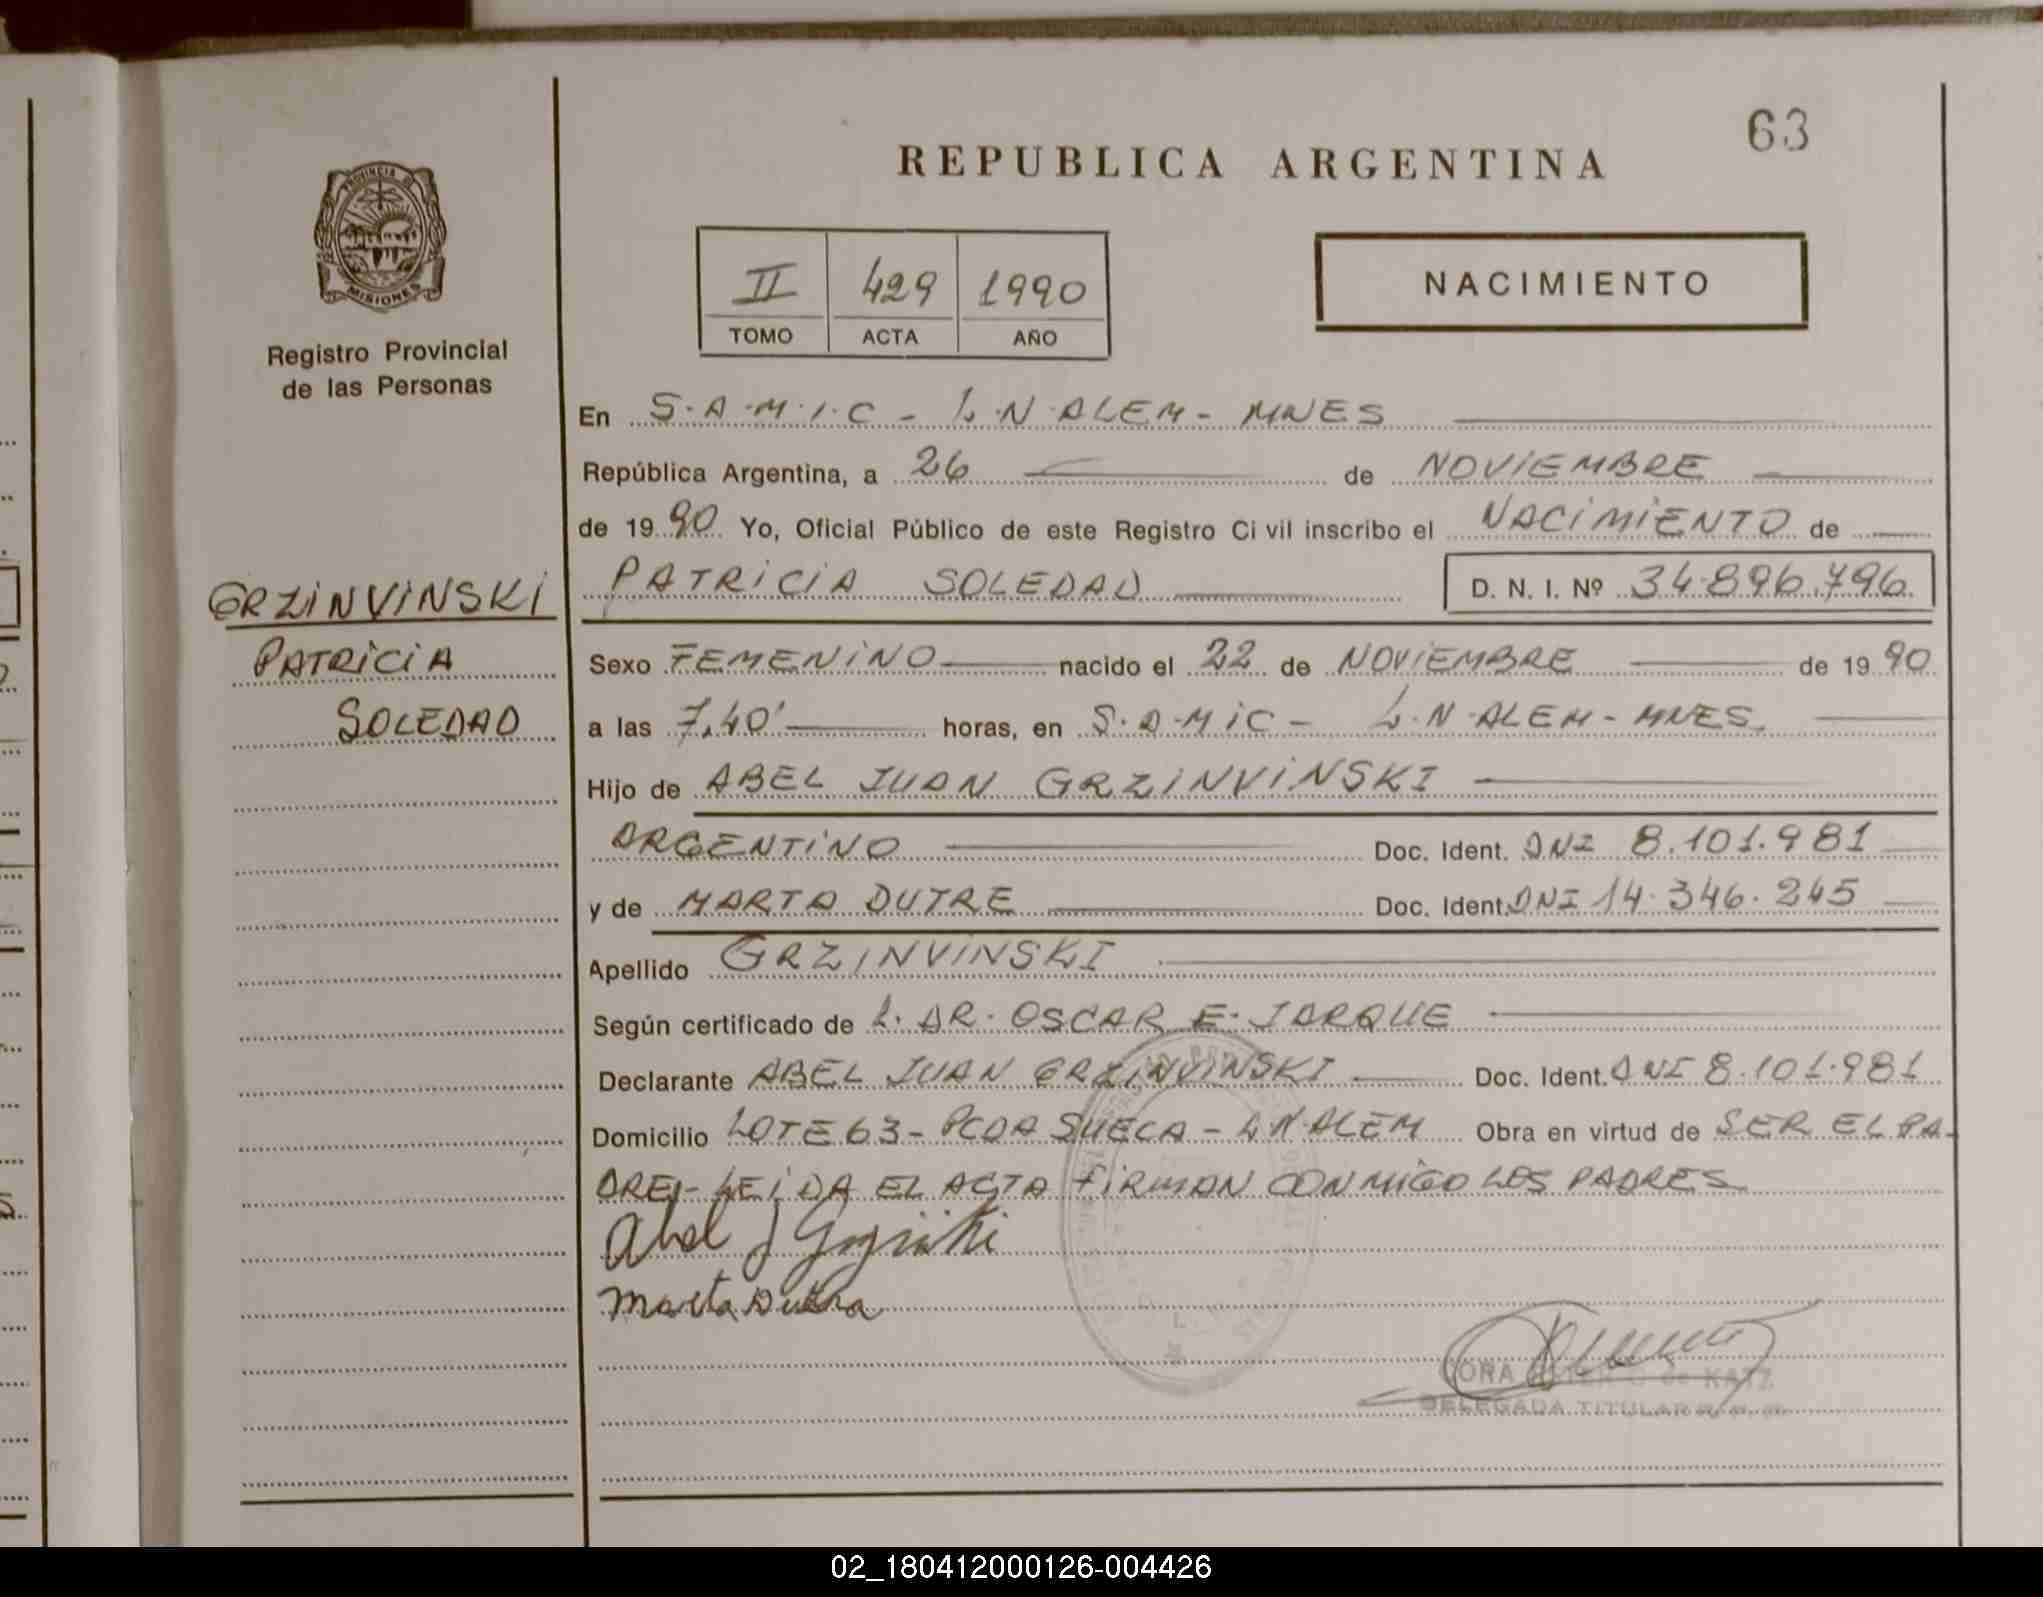 63
REPUBLICA ARGENTINA
PROVINCIA DE
MISIONES
Registro Provincial
de las Personas
II 429 1990
TOMO ACTA AÑO
NACIMIENTO
En S.A.M.I.C - L.N.ALEM - MNES
República Argentina, a 26 de NOVIEMBRE
de 1990 Yo, Oficial Público de este Registro Civil inscribo el NACIMIENTO de
PATRICIA SOLEDAD D. N. I. Nº 34.896.796
GRZINVINSKI
PATRICIA
SOLEDAD
Sexo FEMENINO nacido el 22 de NOVIEMBRE de 1990
a las 7,40' horas, en S.A.MIC - L.N.ALEM - MNES.
Hijo de ABEL JUAN GRZINVINSKI
ARGENTINO Doc. Ident. DNI 8.101.981
y de MARTA DUTRE Doc. Ident. DNI 14.346.245
Apellido GRZINVINSKI
Según certificado de L. DR. OSCAR E. JARQUE
Declarante ABEL JUAN GRZINVINSKI Doc. Ident. DNI 8.101.981
Domicilio LOTE 63 - PCDA SUECA - L.N.ALEM Obra en virtud de SER EL PA-
DRE - LEIDA EL ACTA FIRMAN CONMIGO LOS PADRES
Abel J
Marta Dutra
de KATZ
DELEGADA TITULAR
02_180412000126-004426